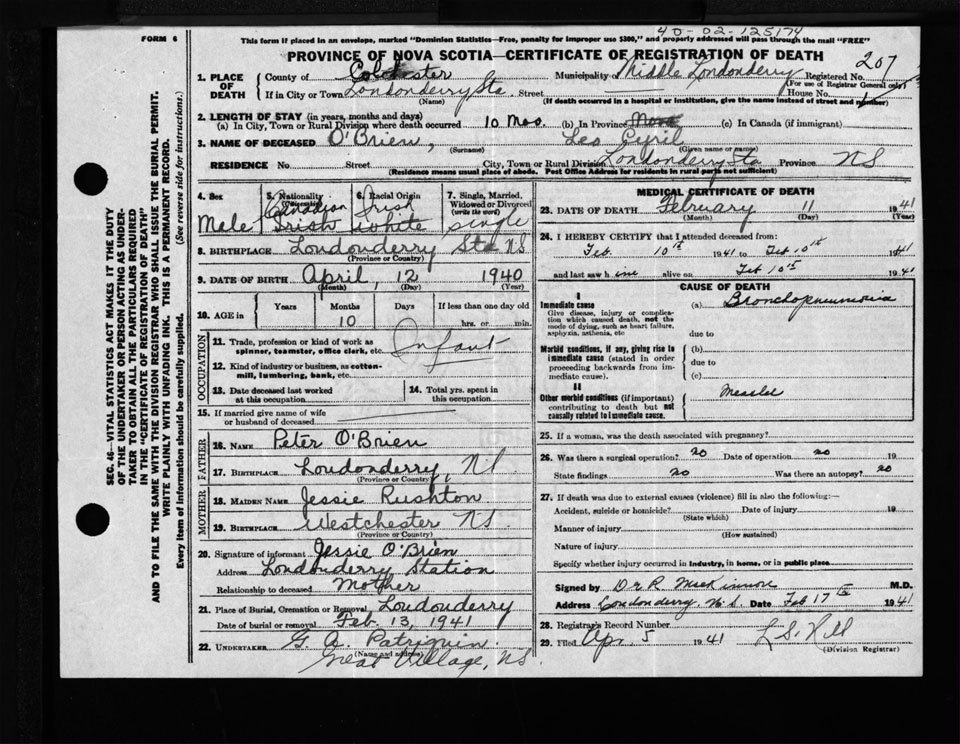 40-02-125174
FORM 6
This form if placed in an envelope, marked "Dominion Statistics—Free, penalty for improper use $300," and properly addressed will pass through the mail "FREE"
PROVINCE OF NOVA SCOTIA—CERTIFICATE OF REGISTRATION OF DEATH
207
1. PLACE OF DEATH
County of Colchester Municipality of Middle Londonderry Registered No.
(For use of Registrar General only)
If in City or Town Londonderry Sta. Street House No.
(Name) (If death occurred in a hospital or institution, give the name instead of street and number)
2. LENGTH OF STAY (in years, months and days)
(a) In City, Town or Rural Division where death occurred 10 Mos. (b) In Province (c) In Canada (if immigrant)
3. NAME OF DECEASED O'Brien, Leo Cyril
(Surname) (Given name or names)
RESIDENCE No. Street City, Town or Rural Division Londonderry Sta Province NS
(Residence means usual place of abode. Post Office Address for residents in rural parts not sufficient)
4. Sex
Male
5. Nationality
(Citizenship)
Canadian
Irish
6. Racial Origin
Irish
White
7. Single, Married, Widowed or Divorced
(write the word)
Single
8. BIRTHPLACE Londonderry Sta NS
(Province or Country)
9. DATE OF BIRTH April, 12 1940
(Month) (Day) (Year)
10. AGE in
Years Months Days If less than one day old
10 hrs. or min.
OCCUPATION
11. Trade, profession or kind of work as spinner, teamster, office clerk, etc. Infant
12. Kind of industry or business, as cotton-mill, lumbering, bank, etc.
13. Date deceased last worked at this occupation
14. Total yrs. spent in this occupation
15. If married give name of wife or husband of deceased
FATHER
16. NAME Peter O'Brien
17. BIRTHPLACE Londonderry, N.S.
(Province or Country)
MOTHER
18. MAIDEN NAME Jessie Rushton
19. BIRTHPLACE Westchester NS.
(Province or Country)
20. Signature of informant Jessie O'Brien
Address Londonderry Station
Relationship to deceased Mother
21. Place of Burial, Cremation or Removal Londonderry
Date of burial or removal Feb. 13, 1941
22. UNDERTAKER G. A. Patriquin
(Name and address)
Great Village, NS.
MEDICAL CERTIFICATE OF DEATH
23. DATE OF DEATH February 11 1941
(Month) (Day) (Year)
24. I HEREBY CERTIFY that I attended deceased from:
Feb. 10th 1941 to Feb 10th 1941
and last saw h im alive on Feb 10th 1941
CAUSE OF DEATH
I
Immediate cause
Give disease, injury or complication which caused death, not the mode of dying, such as heart failure, asphyxia, asthenia, etc
(a) Bronchopneumonia
due to
Morbid conditions, if any, giving rise to immediate cause (stated in order proceeding backwards from immediate cause).
(b)
due to
(c)
II
Other morbid conditions (if important) contributing to death but not causally related to immediate cause.
Measles
25. If a woman, was the death associated with pregnancy?
26. Was there a surgical operation? no Date of operation no 19
State findings no Was there an autopsy? no
27. If death was due to external causes (violence) fill in also the following:—
Accident, suicide or homicide? Date of injury 19
(State which)
Manner of injury
(How sustained)
Nature of injury
Specify whether injury occurred in industry, in home, or in public place
Signed by Dr R. MacKinnon M.D.
Address Londonderry N.S. Date Feb 17th 1941
28. Registrar's Record Number
29. Filed Apr. 5 1941 L S. Hill
(Division Registrar)
SEC. 46—VITAL STATISTICS ACT MAKES IT THE DUTY
OF THE UNDERTAKER OR PERSON ACTING AS UNDER-
TAKER TO OBTAIN ALL THE PARTICULARS REQUIRED
IN THE "CERTIFICATE OF REGISTRATION OF DEATH"
AND TO FILE THE SAME WITH THE DIVISION REGISTRAR WHO SHALL ISSUE THE BURIAL PERMIT.
WRITE PLAINLY WITH UNFADING INK. THIS IS A PERMANENT RECORD.
Every item of information should be carefully supplied. (See reverse side for instructions.)